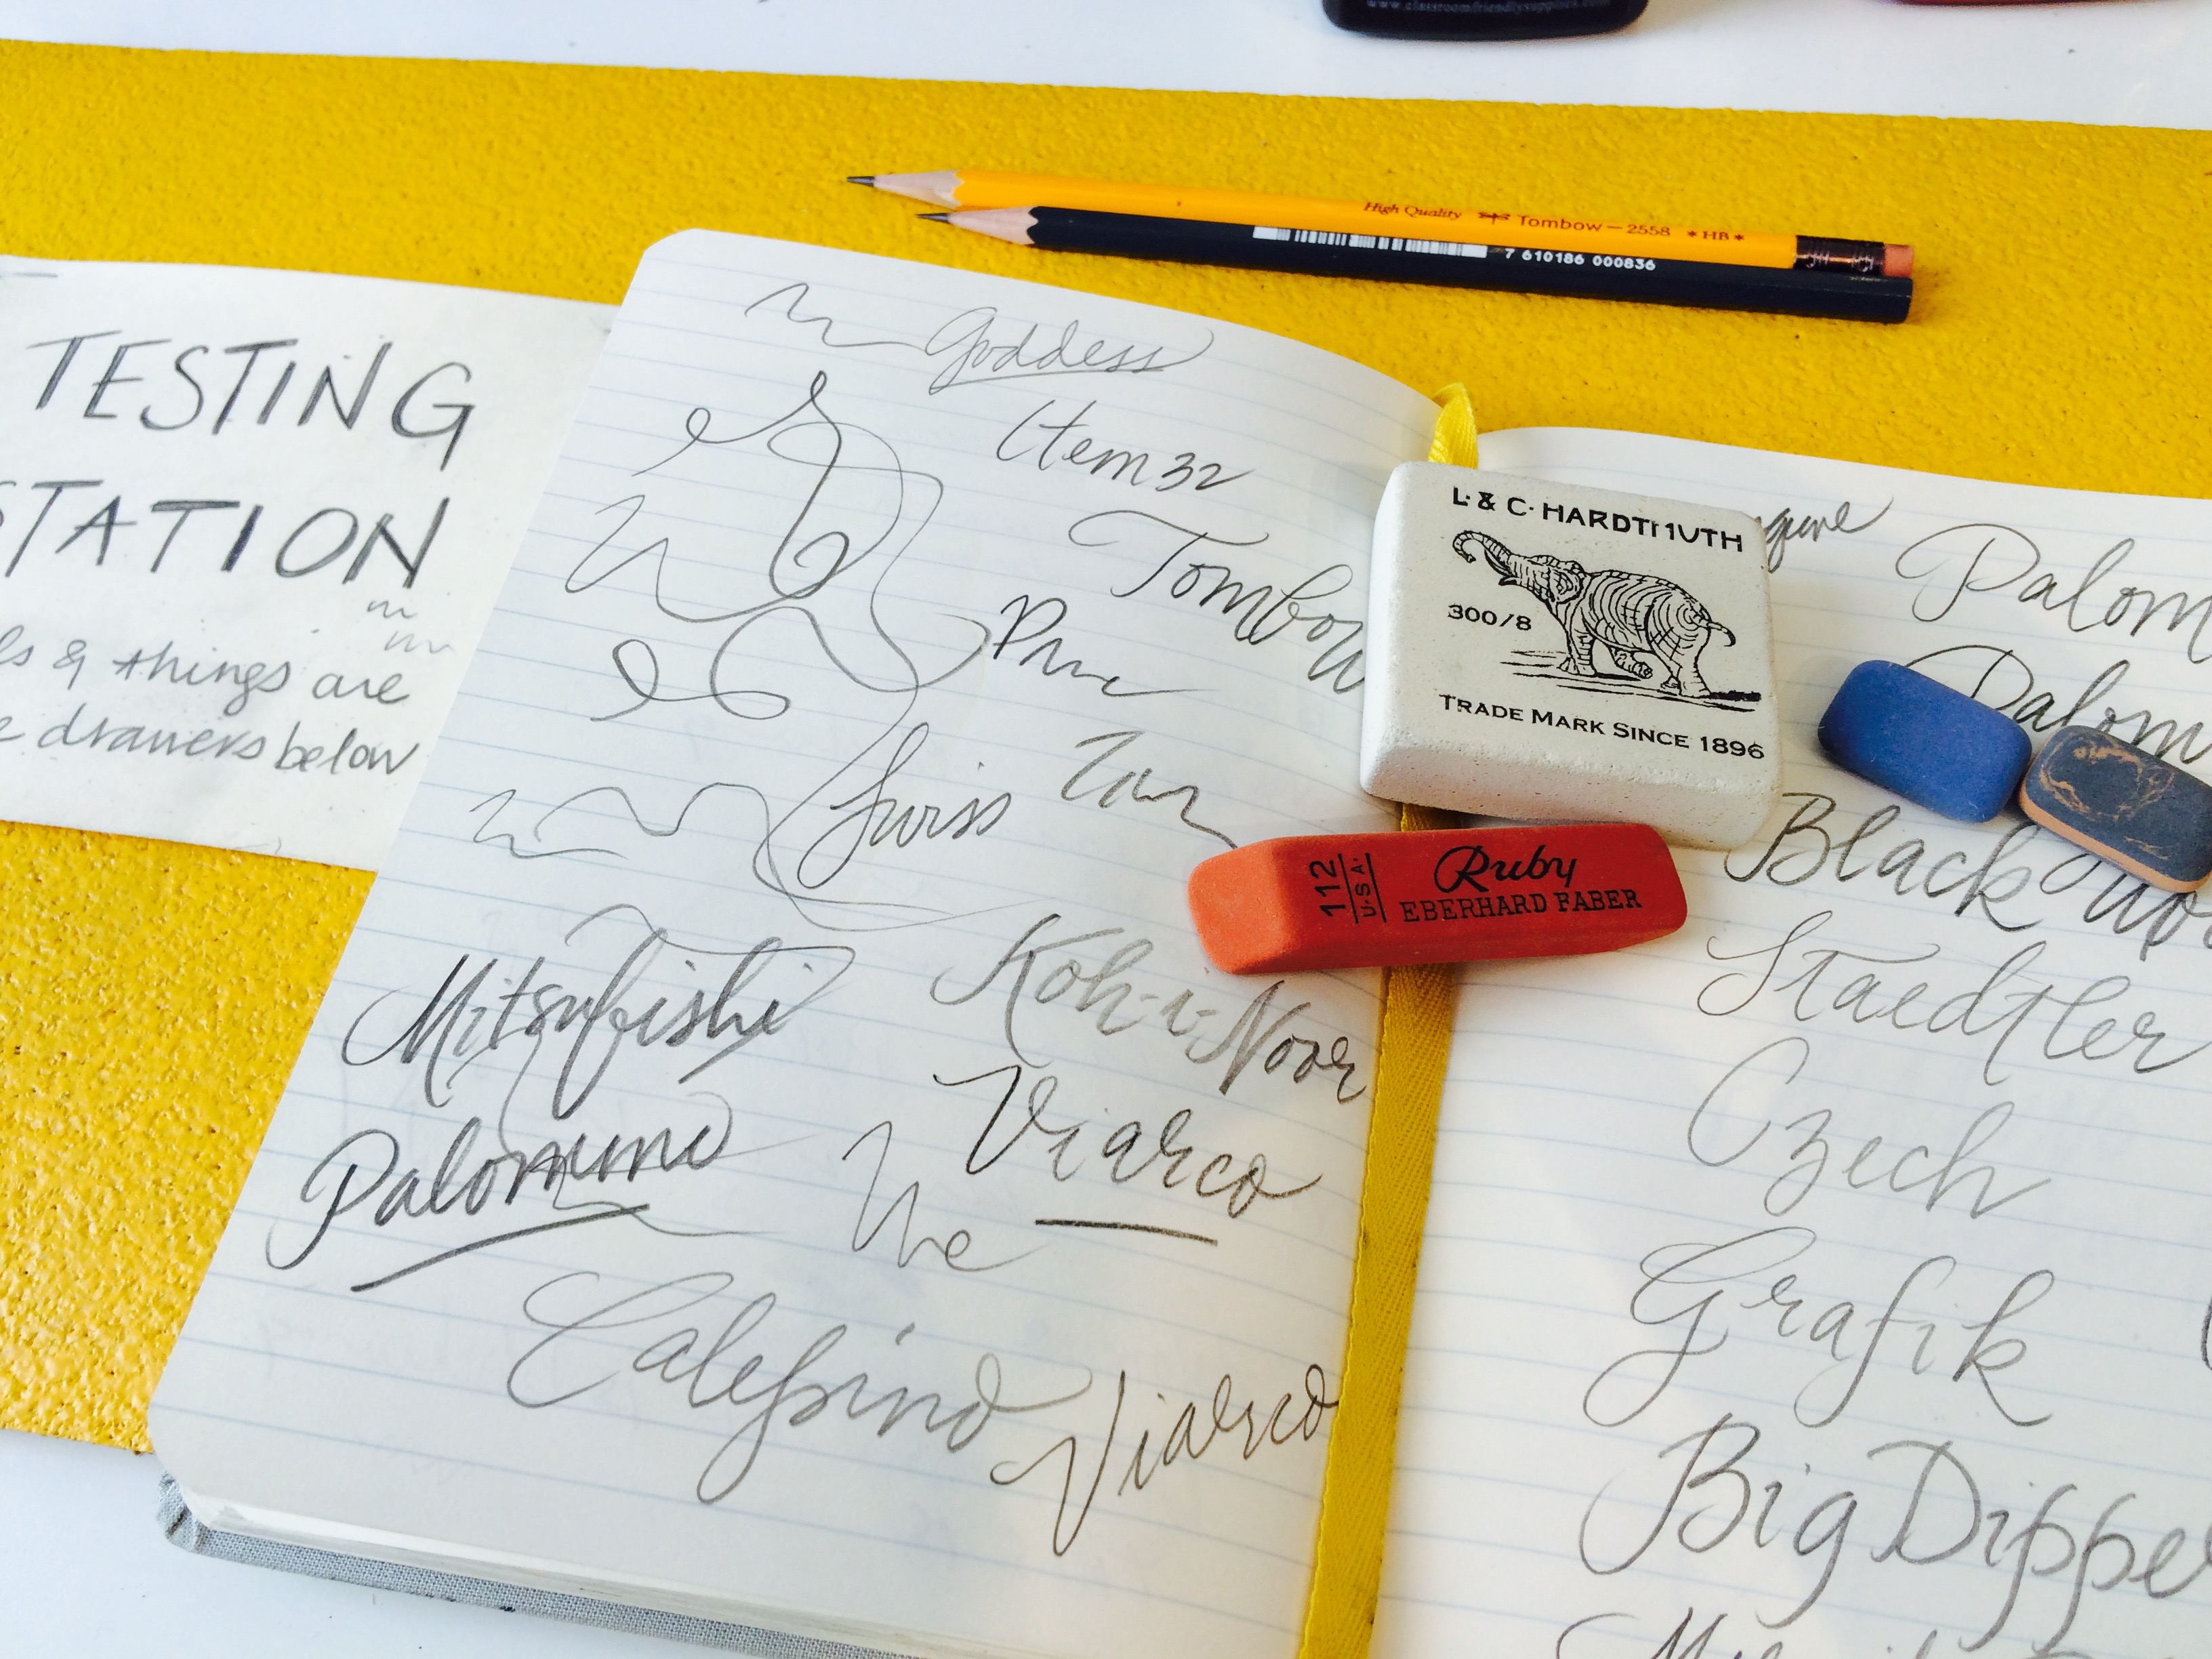 www.classroomfriendlysupplies.com
High Quality Tombow - 2558 *HB*
7 610186 000836
TESTING
STATION
& things are
drawers below
Goddess
Item 32
Tombow
Swiss
Mitsubishi
Koh-i-Noor
Palomino
Viarco
Calepino
Viarco
L. & C. HARDTMUTH
300/8
TRADE MARK SINCE 1896
112
U.S.A.
Ruby
EBERHARD FABER
Palom
Palom
Black
Staedtler
Czech
Grafik
Big Dipper